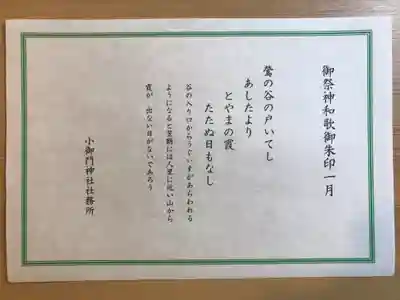 御祭神和歌御朱印一月
鶯の谷の戸いでし
あしたより
とやまの霞
たたぬ日もなし
谷の入り口からうぐいすがあらわれる
ようになると里朝には人里に近い山から
霞が、出ない日がないであろう
小御門神社社務所